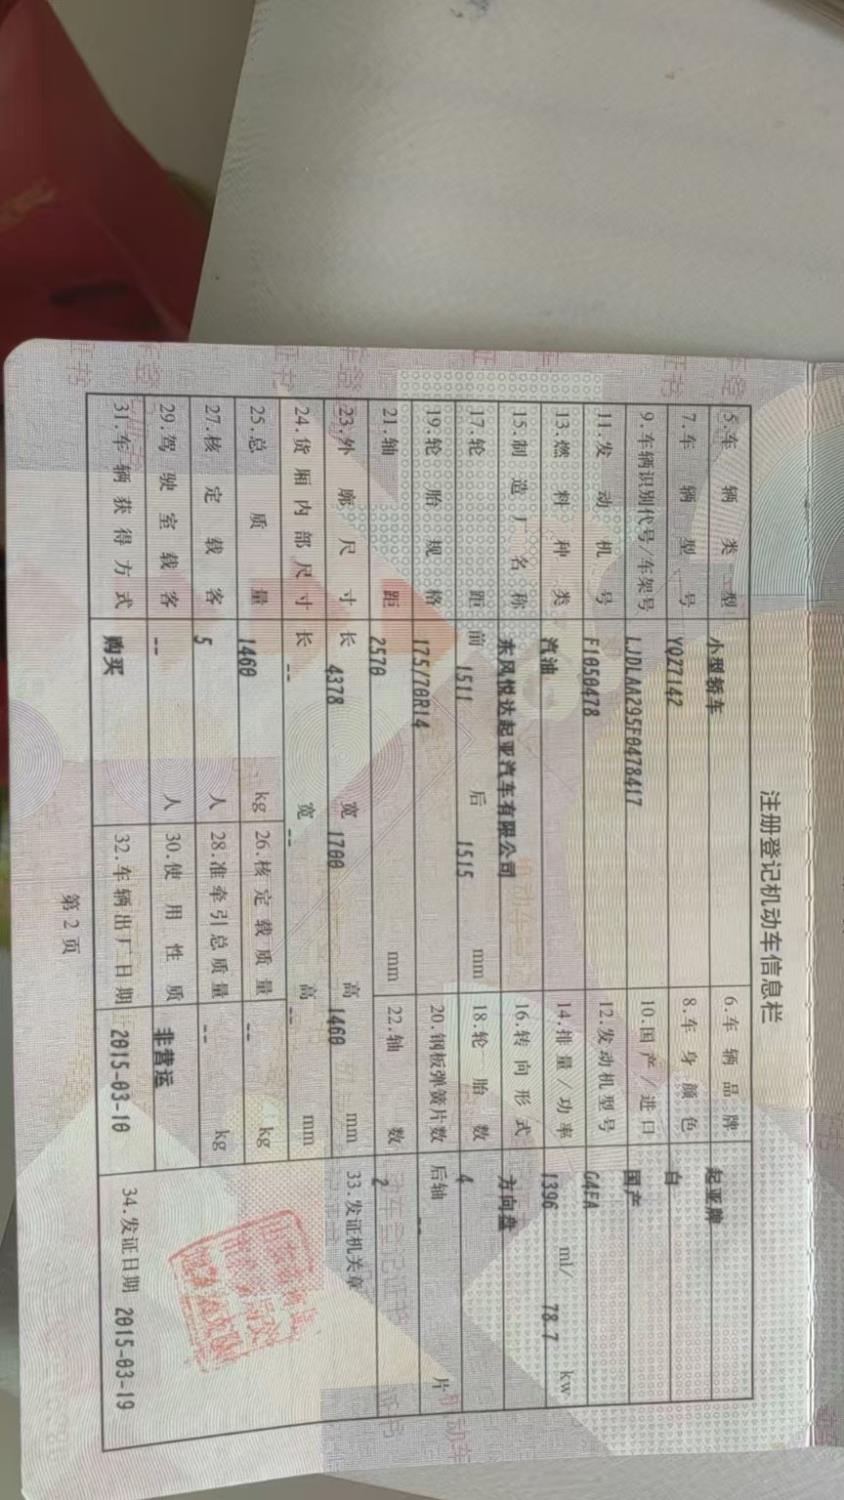 注册登记机动车信息栏
5.车辆类型 小型轿车 6.车辆品牌 起亚牌
7.车辆型号 YQZ7142 8.车身颜色 白
9.车辆识别代号/车架号 LJDLAA295F0478417 10.国产/进口 国产
11.发动机号 F1050478 12.发动机型号 G4FA
13.燃料种类 汽油 14.排量/功率 1396 ml/ 78.7 kw
15.制造厂名称 东风悦达起亚汽车有限公司 16.转向形式 方向盘
17.轮距 前 1511 后 1515 mm 18.轮胎数 4
19.轮胎规格 175/70R14 20.钢板弹簧片数 后轴 -- 片
21.轴距 2570 mm 22.轴数 2
23.外廓尺寸 长 4378 宽 1700 高 1460 mm 33.发证机关章
24.货厢内部尺寸 长 -- 宽 -- 高 -- mm
25.总质量 1460 kg 26.核定载质量 -- kg
27.核定载客 5 人 28.准牵引总质量 -- kg
29.驾驶室载客 -- 人 30.使用性质 非营运
31.车辆获得方式 购买 32.车辆出厂日期 2015-03-10 34.发证日期 2015-03-19
第2页